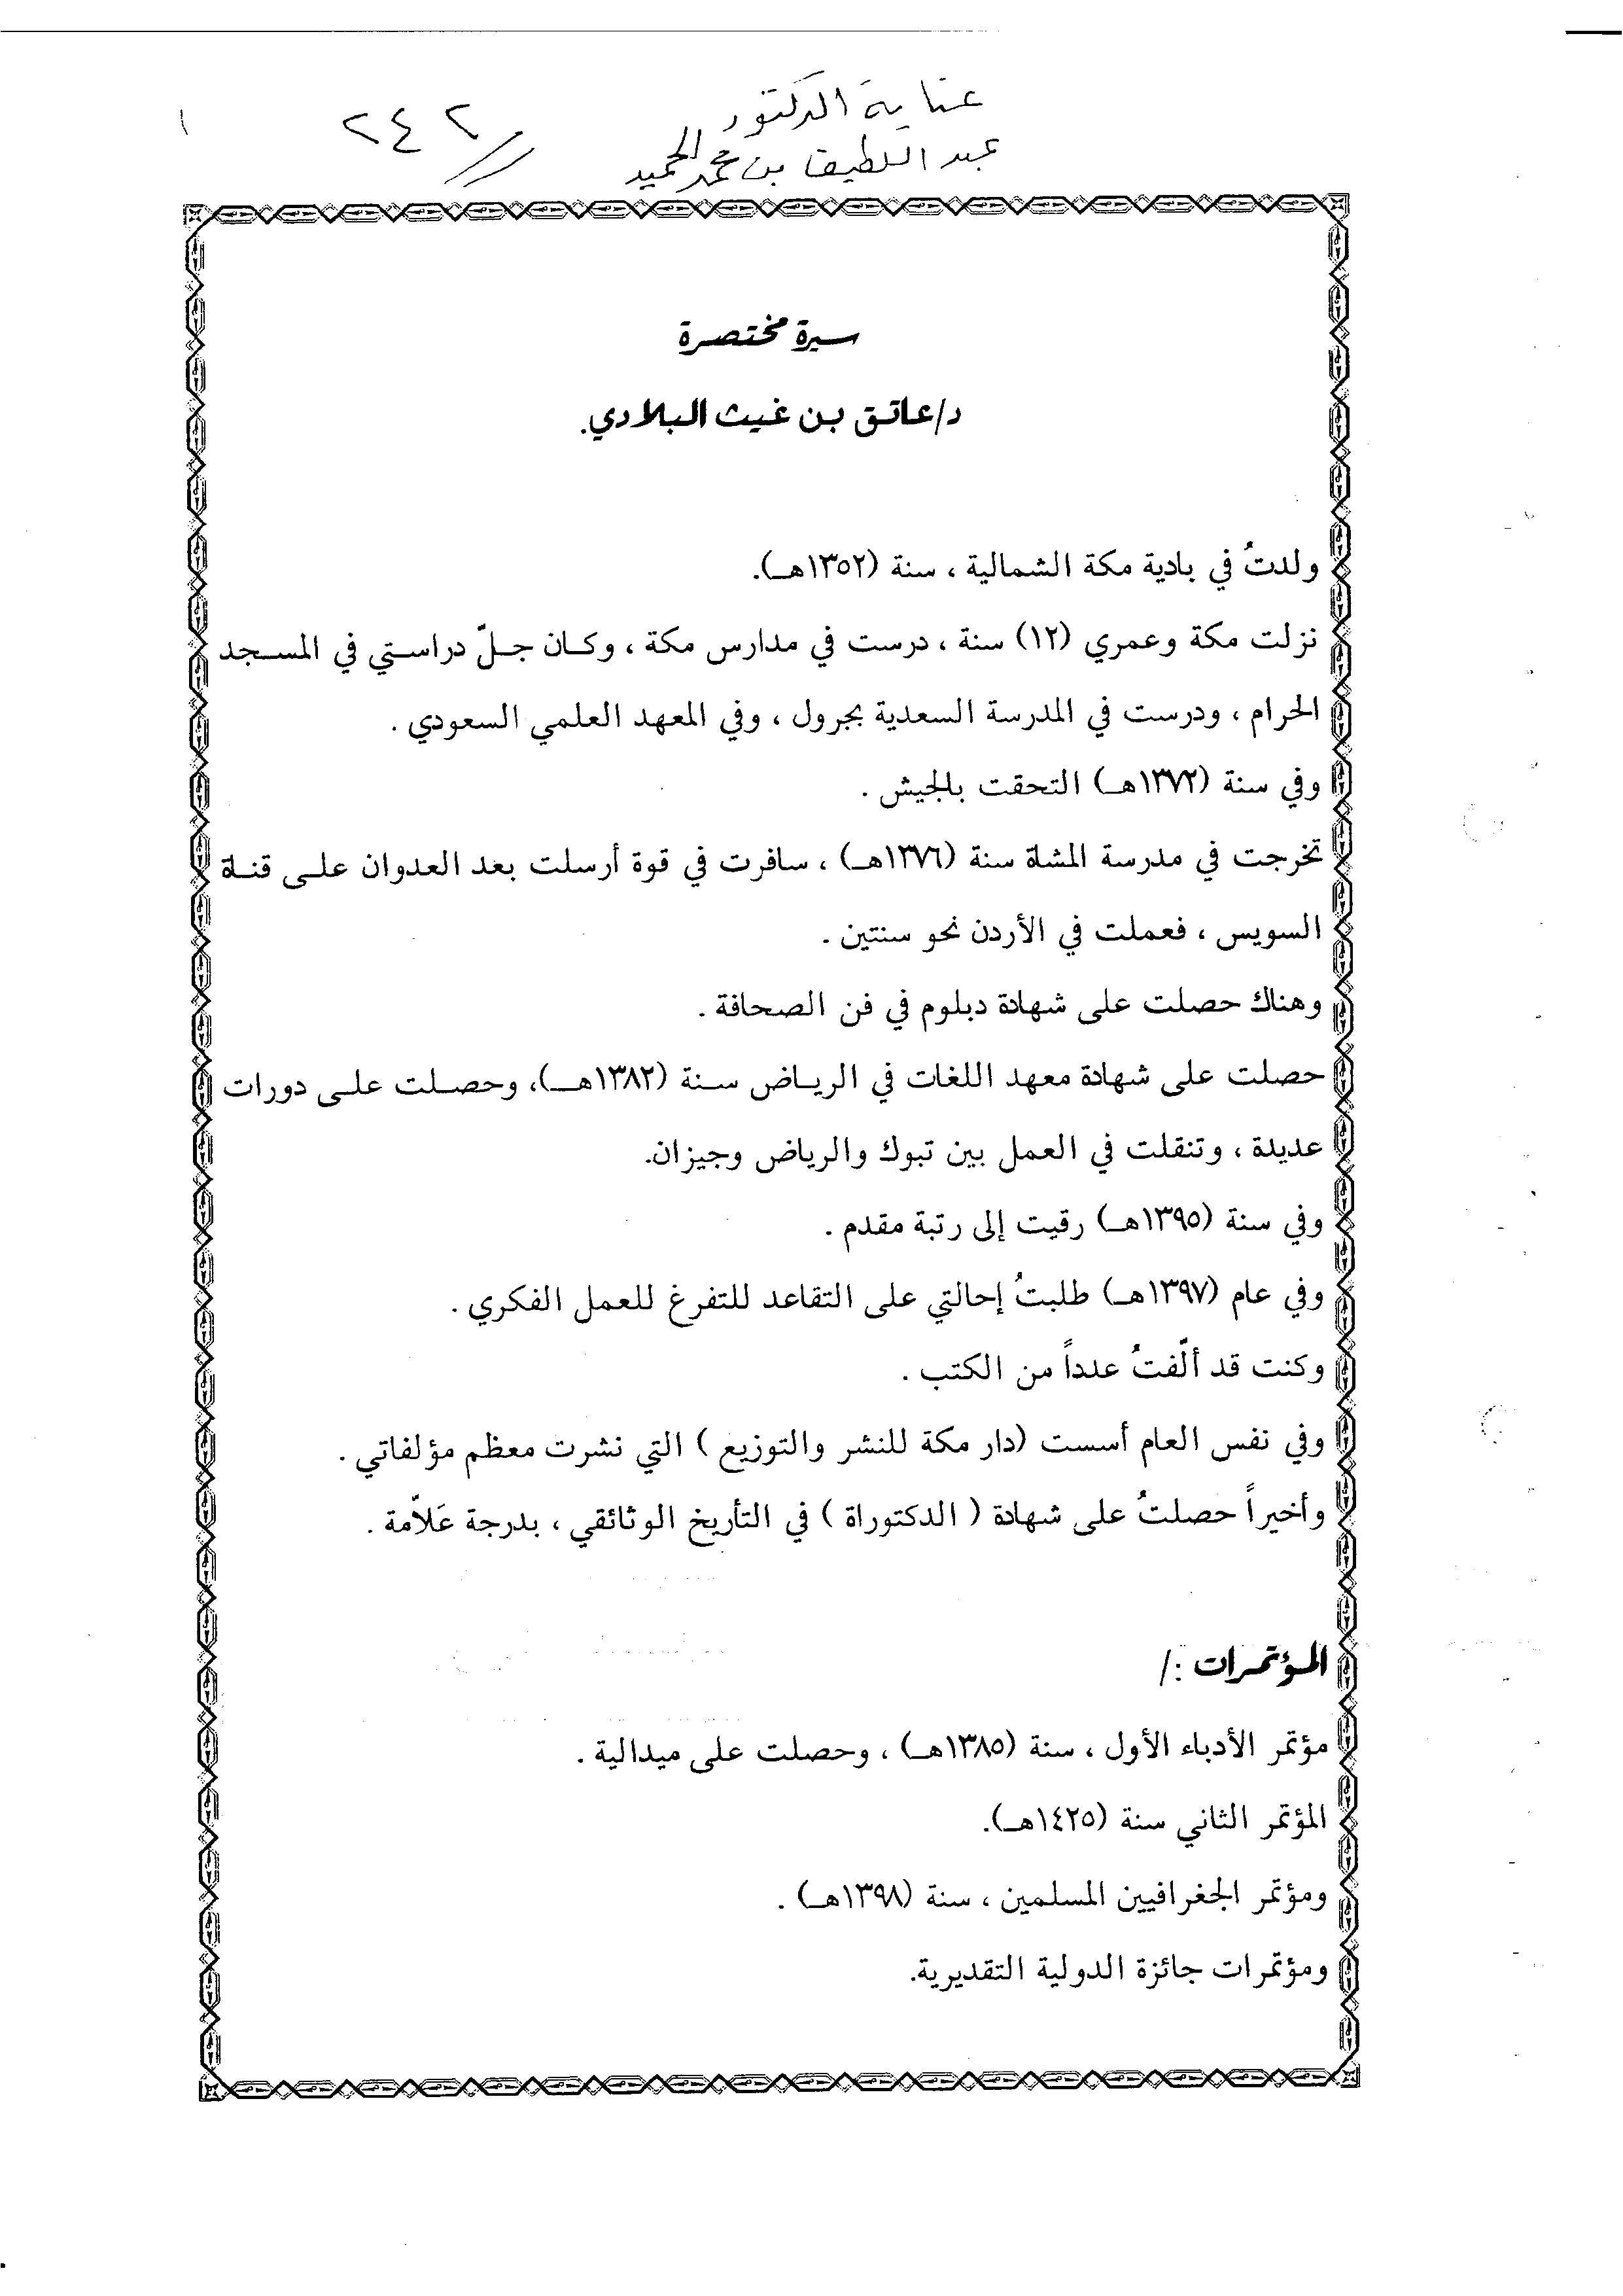 عناية الدكتور
عبد اللطيف بن محمد الحميد
٢٤٢
١
سيرة مختصرة
د/عاتق بن غيث البلادي.
ولدتُ في بادية مكة الشمالية ، سنة (١٣٥٢هـ).
نزلت مكة وعمري (١٢) سنة ، درست في مدارس مكة ، وكان جلّ دراستي في المسجد
الحرام ، ودرست في المدرسة السعدية بجرول ، وفي المعهد العلمي السعودي .
وفي سنة (١٣٧٢هـ) التحقت بالجيش .
تخرجت في مدرسة المشاة سنة (١٣٧٦هـ) ، سافرت في قوة أرسلت بعد العدوان على قناة
السويس ، فعملت في الأردن نحو سنتين .
وهناك حصلت على شهادة دبلوم في فن الصحافة .
حصلت على شهادة معهد اللغات في الرياض سنة (١٣٨٢هـ)، وحصلت على دورات
عديدة ، وتنقلت في العمل بين تبوك والرياض وجيزان.
وفي سنة (١٣٩٥هـ) رقيت إلى رتبة مقدم .
وفي عام (١٣٩٧هـ) طلبتُ إحالتي على التقاعد للتفرغ للعمل الفكري .
وكنت قد ألّفتُ عدداً من الكتب .
وفي نفس العام أسست (دار مكة للنشر والتوزيع ) التي نشرت معظم مؤلفاتي .
وأخيراً حصلتُ على شهادة ( الدكتوراة ) في التأريخ الوثائقي ، بدرجة عَلاّمة .
المؤتمرات :/
مؤتمر الأدباء الأول ، سنة (١٣٨٥هـ) ، وحصلت على ميدالية .
المؤتمر الثاني سنة (١٤٢٥هـ).
ومؤتمر الجغرافيين المسلمين ، سنة (١٣٩٨هـ) .
ومؤتمرات جائزة الدولية التقديرية.